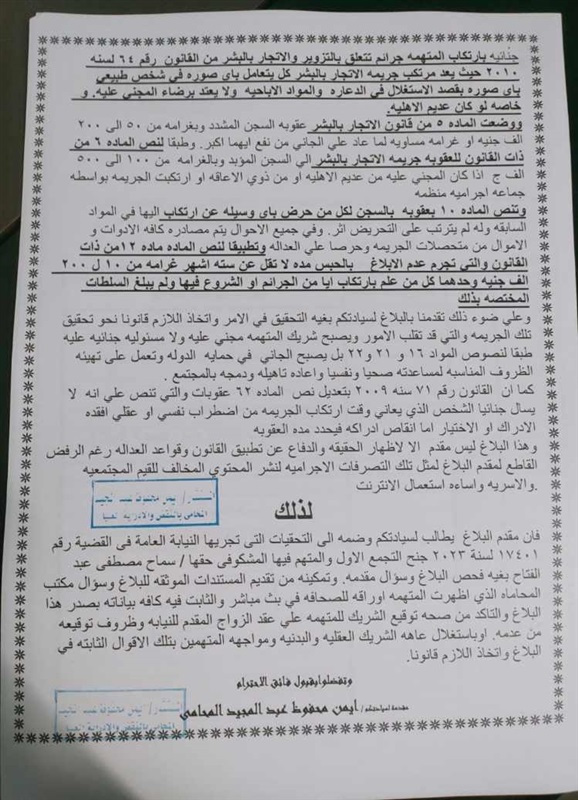 جنائيه بارتكاب المتهمه جرائم تتعلق بالتزوير والاتجار بالبشر من القانون رقم ٦٤ لسنه
٢٠١٠ حيث يعد مرتكب جريمه الاتجار بالبشر كل يتعامل باي صوره في شخص طبيعي
باي صوره بقصد الاستغلال في الدعاره والمواد الاباحيه ولا يعتد برضاء المجني عليه. و
خاصه لو كان عديم الاهليه.
ووضعت الماده ٥ من قانون الاتجار بالبشر عقوبه السجن المشدد وبغرامه من ٥٠ الى ٢٠٠
الف جنيه او غرامه مساويه لما عاد علي الجاني من نفع ايهما اكبر. وطبقا لنص الماده ٦ من
ذات القانون للعقوبه جريمه الاتجار بالبشر الي السجن المؤبد وبالغرامه من ١٠٠ الى ٥٠٠
الف ج اذا كان المجني عليه من عديم الاهليه او من ذوي الاعاقه او ارتكبت الجريمه بواسطه
جماعه اجراميه منظمه
وتنص الماده ١٠ بعقوبه بالسجن لكل من حرض باي وسيله عن ارتكاب اليها في المواد
السابقه وله لم يترتب على التحريض اثر. وفي جميع الاحوال يتم مصادره كافه الادوات و
الاموال من متحصلات الجريمه وحرصا علي العداله وتطبيقا لنص الماده ماده ١٢ من ذات
القانون والتي تجرم عدم الابلاغ بالحبس مده لا تقل عن سته اشهر غرامه من ١٠ ل ٢٠٠
الف جنيه وحدهما كل من علم بارتكاب ايا من الجرائم او الشروع فيها ولم يبلغ السلطات
المختصه بذلك
وعلي ضوء ذلك تقدمنا بالبلاغ لسيادتكم بغيه التحقيق في الامر واتخاذ اللازم قانونا نحو تحقيق
تلك الجريمه والتي قد تقلب الامور ويصبح شريك المتهمه مجني عليه ولا مسئوليه جنائيه عليه
طبقا لنصوص المواد ١٦ و ٢١ و ٢٢ بل يصبح الجاني في حمايه الدوله وتعمل على تهيئه
الظروف المناسبه لمساعدته صحيا ونفسيا واعاده تاهيله ودمجه بالمجتمع .
كما ان القانون رقم ٧١ سنه ٢٠٠٩ بتعديل نص الماده ٦٢ عقوبات والتي تنص علي انه لا
يسال جنائيا الشخص الذي يعاني وقت ارتكاب الجريمه من اضطراب نفسي او عقلي افقده
الادراك او الاختيار اما انقاص ادراكه فيحدد مده العقوبه
وهذا البلاغ ليس مقدم الا لاظهار الحقيقه والدفاع عن تطبيق القانون وقواعد العداله رغم الرفض
القاطع لمقدم البلاغ لمثل تلك التصرفات الاجراميه لنشر المحتوي المخالف للقيم المجتمعيه
والاسريه واساءه استعمال الانترنت
المستشار / ايمن محفوظ عبد المجيد
المحامي بالنقض والادارية العليا
لذلك
فان مقدم البلاغ يطالب لسيادتكم وضمه الى التحقيات التى تجريها النيابة العامة فى القضية رقم
١٧٤٠١ لسنة ٢٠٢٣ جنح التجمع الاول والمتهم فيها المشكوفى حقها / سماح مصطفى عبد
الفتاح بغيه فحص البلاغ وسؤال مقدمه. وتمكينه من تقديم المستندات الموثقه للبلاغ وسؤال مكتب
المحاماه الذي اظهرت المتهمه اوراقه للصحافه في بث مباشر والثابت فيه كافه بياناته بصدر هذا
البلاغ والتاكد من صحه توقيع الشريك للمتهمه علي عقد الزواج المقدم للنيابه وظروف توقيعه
من عدمه. اوباستغلال عاهه الشريك العقليه والبدنيه ومواجهه المتهمين بتلك الاقوال الثابته في
البلاغ واتخاذ اللازم قانونا.
وتفضلوا بقبول فائق الاحترام
مقدمة لسيادتكم / ايمن محفوظ عبد المجيد المحامي
المستشار / ايمن محفوظ عبد المجيد
المحامي بالنقض والادارية العليا